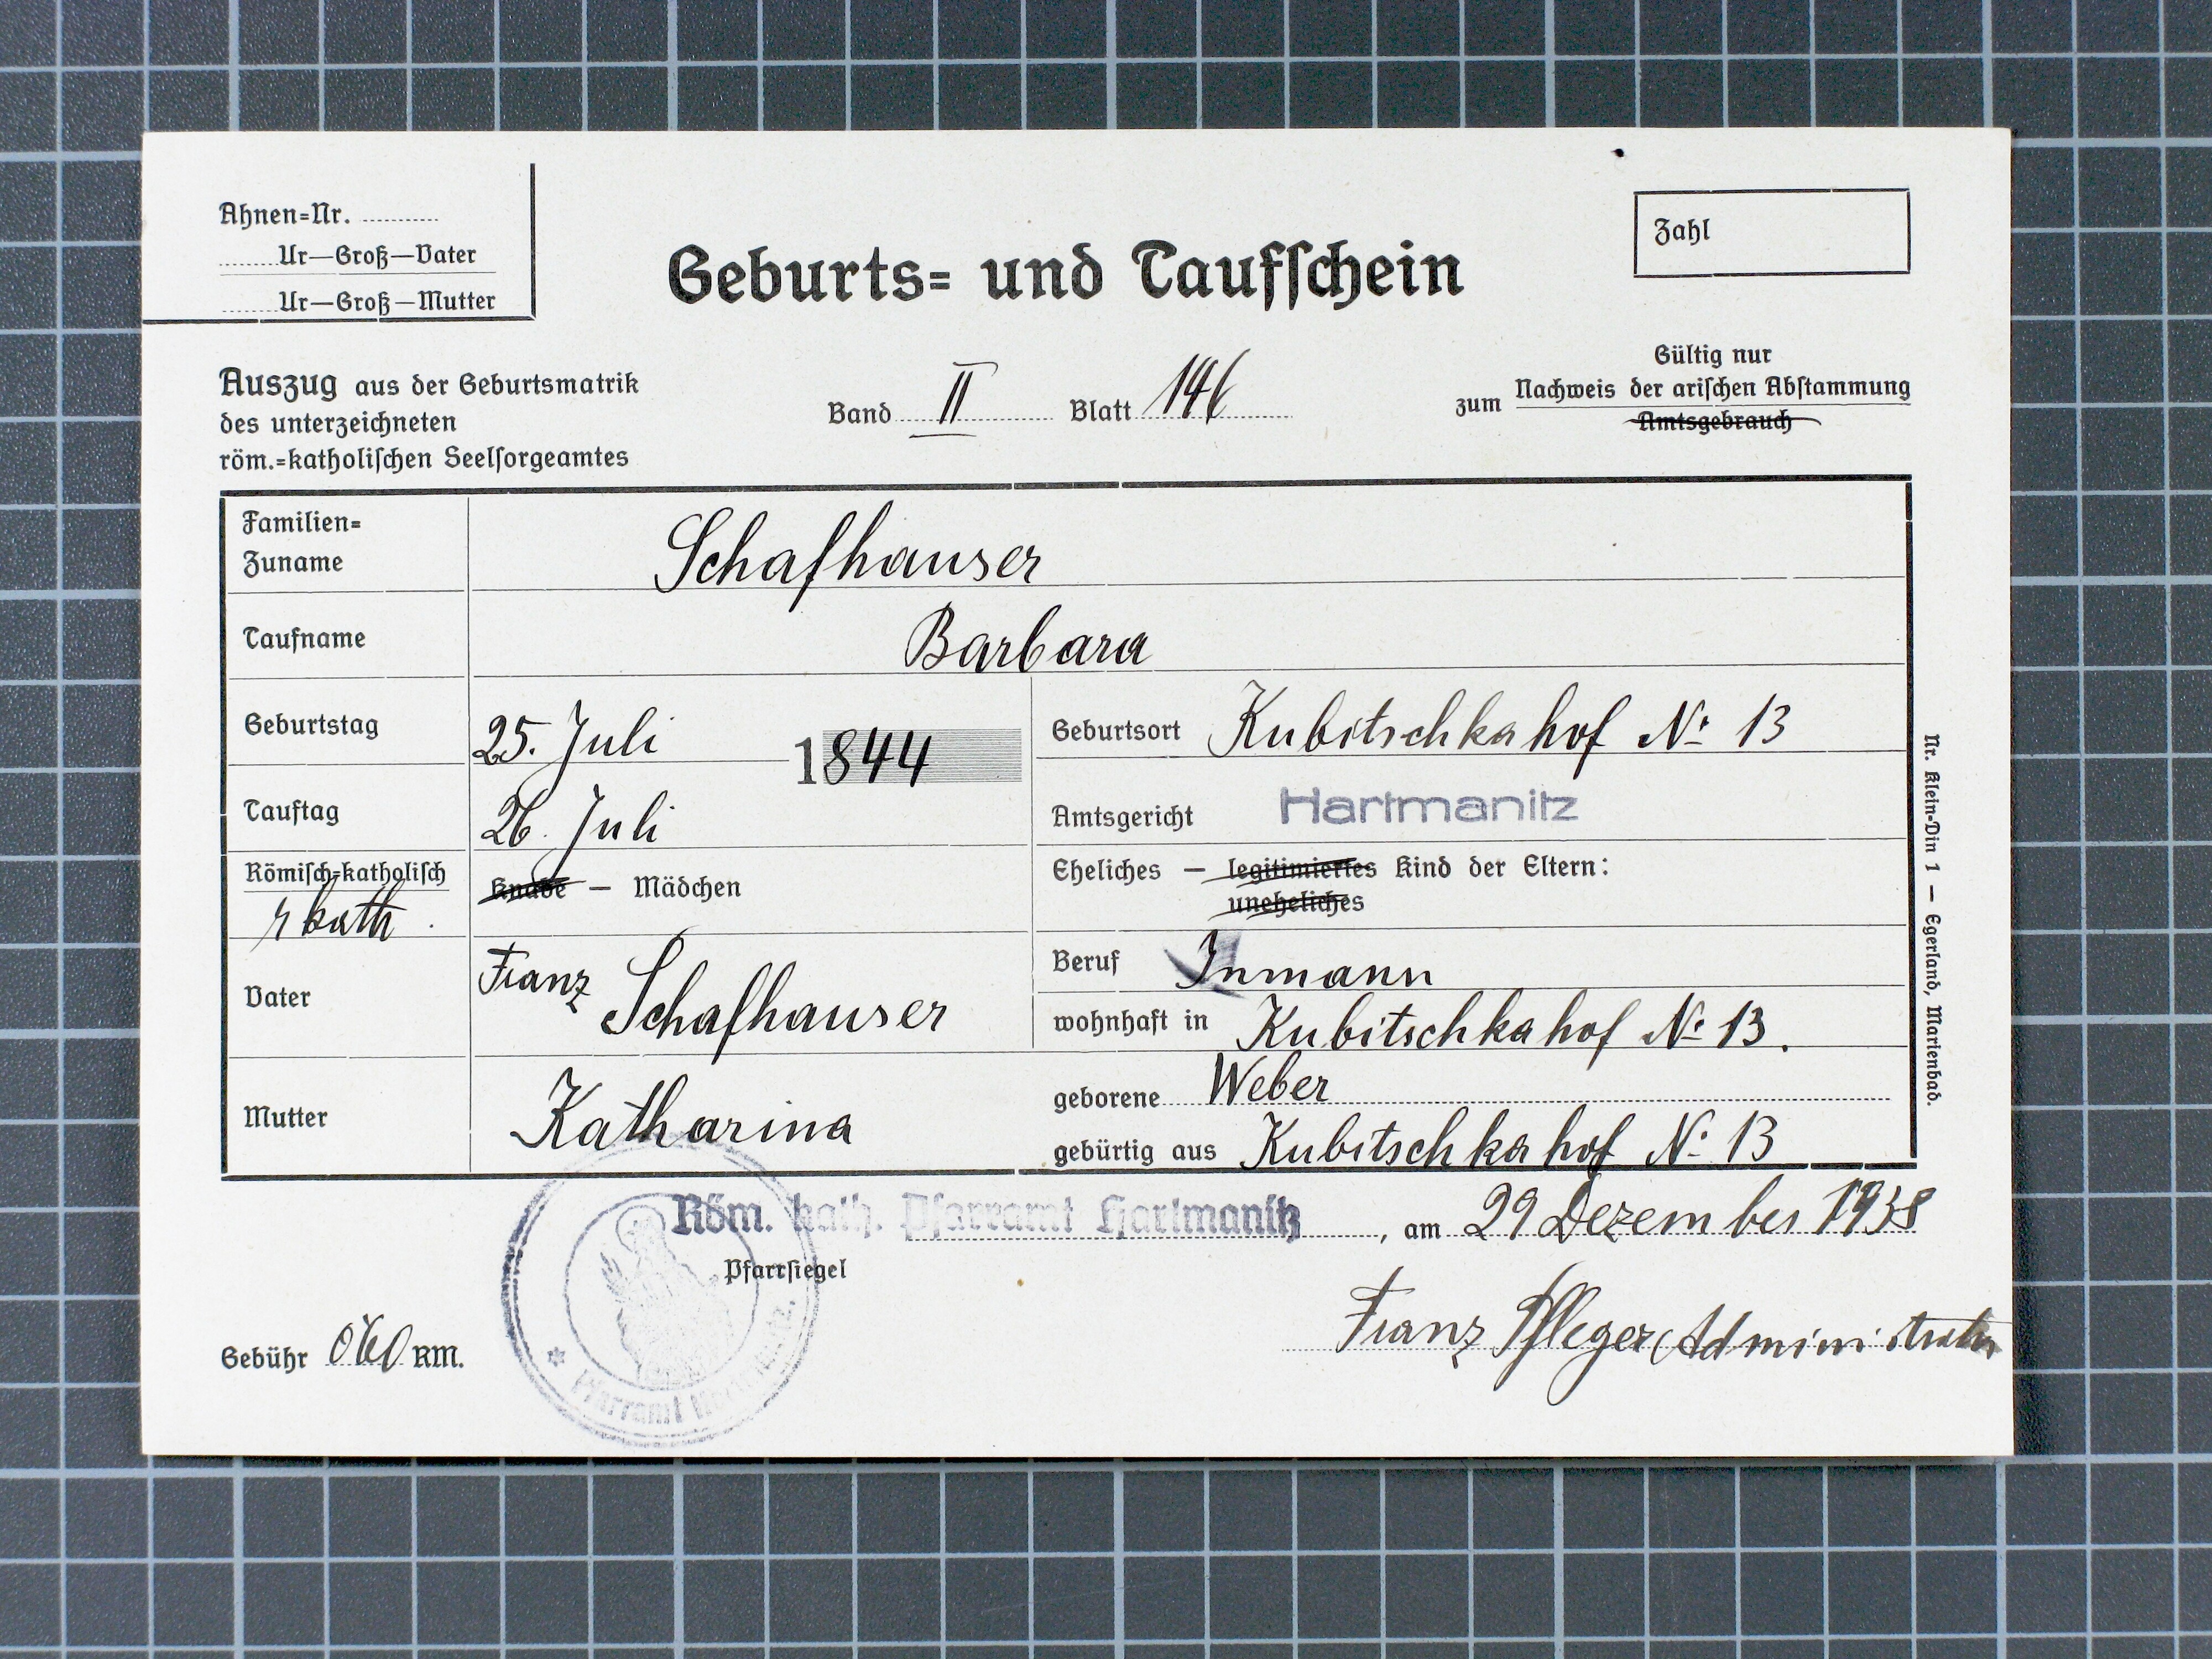 Ahnen=Nr. ............
........Ur—Groß—Vater
........Ur—Groß—Mutter
Geburts= und Taufschein
Zahl
Auszug aus der Geburtsmatrik
des unterzeichneten
röm.=katholischen Seelsorgeamtes
Band II Blatt 146
Gültig nur
zum Nachweis der arischen Abstammung
Amtsgebrauch
Familien=
Zuname Schafhauser
Taufname Barbara
Geburtstag 25. Juli 1844
Geburtsort Kubitschkahof No 13
Tauftag 26. Juli
Amtsgericht Hartmanitz
Römisch=katholisch
r kath.
Knabe — Mädchen
Eheliches — legitimiertes Kind der Eltern:
uneheliches
Vater Franz Schafhauser
Beruf Inmann
wohnhaft in Kubitschkahof No 13.
Mutter Katharina
geborene Weber
gebürtig aus Kubitschkahof No 13
Röm. kath. Pfarramt Hartmanitz, am 29 Dezember 1938
Pfarrsiegel
Franz Pfleger Administrator
Gebühr 0·60 RM.
* Pfarramt Hartmanitz.
Nr. Klein-Din 1 — Egerland, Marienbad.